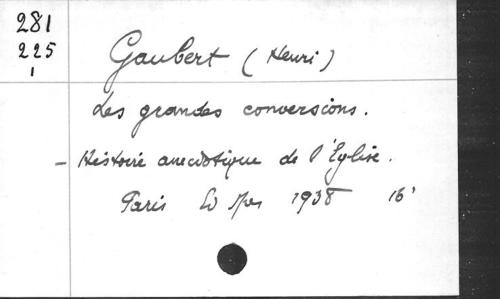 281
225
1
Gaubert (Henri)
Les grandes conversions.
- Histoire anecdotique de l'Eglise.
Paris Ed Spes 1938 16°